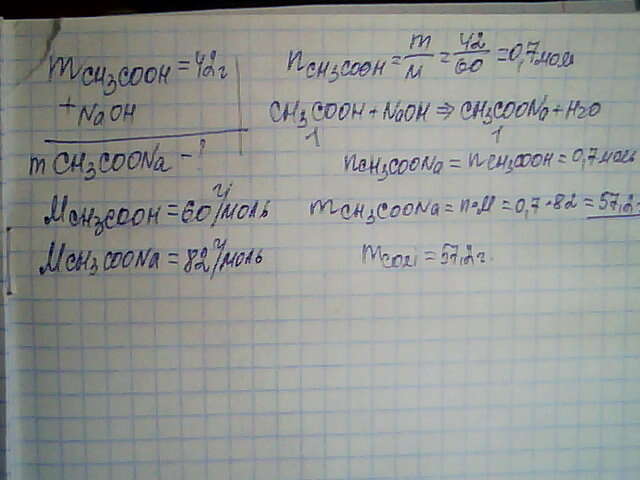 mCH₃COOH = 42г
+NaOH
mCH₃COONa - ?
MCH₃COOH = 60 г/моль
MCH₃COONa = 82 г/моль
nCH₃COOH = m/M = 42/60 = 0,7 моль
CH₃COOH + NaOH ⇒ CH₃COONa + H₂O
1 1
nCH₃COONa = nCH₃COOH = 0,7 моль
mCH₃COONa = n·M = 0,7·82 = 57,2г
mсоли = 57,2г.